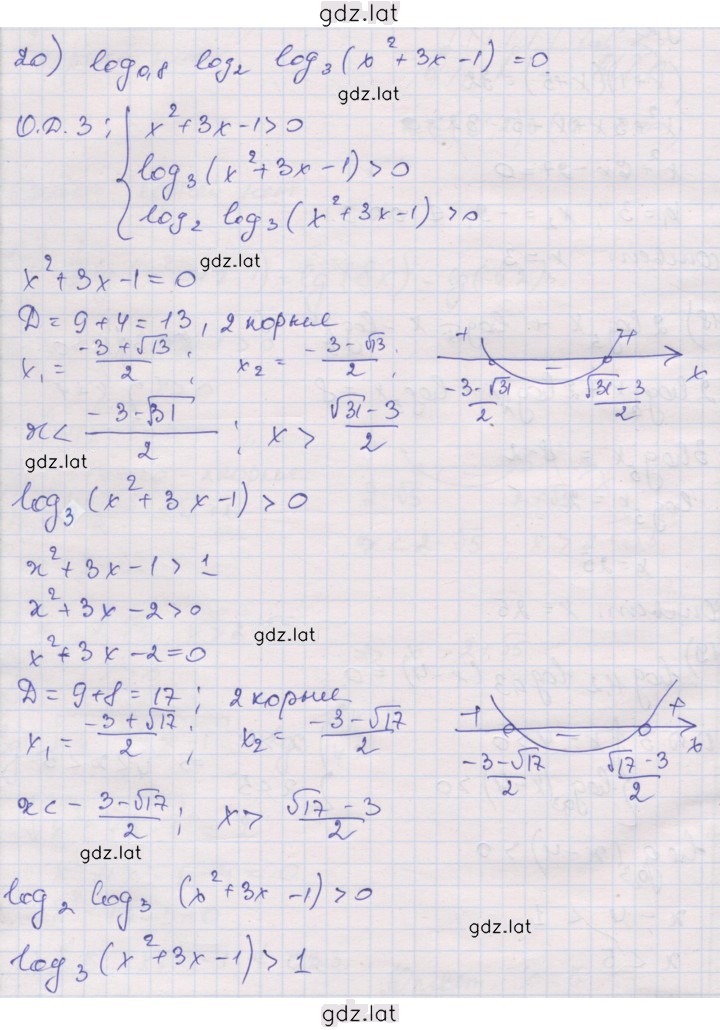 gdz.lat
20) log₀,₈ log₂ log₃(x²+3x-1)=0
gdz.lat
О.Д.З: { x²+3x-1>0
log₃(x²+3x-1)>0
log₂ log₃(x²+3x-1)>0
gdz.lat
x²+3x-1=0
D=9+4=13, 2 корня
x₁=(-3+√13)/2; x₂=(-3-√13)/2;
+ - + x
(-3-√31)/2 (√31-3)/2
x<(-3-√31)/2; x>(√31-3)/2
gdz.lat
log₃(x²+3x-1)>0
x²+3x-1>1
x²+3x-2>0
gdz.lat
x²+3x-2=0
D=9+8=17; 2 корня
x₁=(-3+√17)/2; x₂=(-3-√17)/2
+ - + x
(-3-√17)/2 (√17-3)/2
x<-(3-√17)/2; x>(√17-3)/2
gdz.lat
log₂ log₃ (x²+3x-1)>0
gdz.lat
log₃(x²+3x-1)>1
gdz.lat